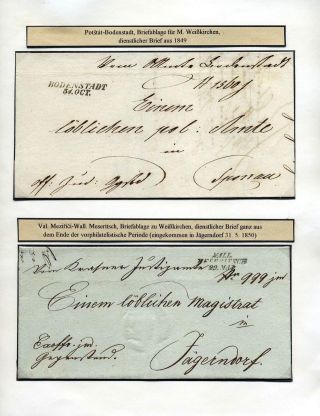 Potštát-Bodenstadt, Briefablage für M. Weißkirchen,
dienstlicher Brief aus 1849
Vom Obamte Bodenstadt
BODENSTADT
31. OCT.
Einem
löblichen pol: Amte
in
Sponau
Val. Meziříčí-Wall. Meseritsch, Briefablage zu Weißkirchen, dienstlicher Brief ganz aus
dem Ende der vorphilatelistische Periode (eingekommen in Jägerndorf 31. 5. 1850)
WALL.
MESERITSCH
29. MAI
Vom Krasner Justizamte
Nro 999 jud
Einem löblichen Magistrat
in
Jägerndorf.